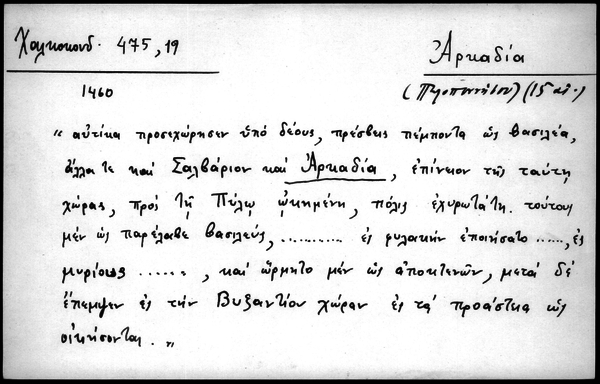 Χαλκοκονδ. 475, 19
Ἀρκαδία
1460
(Πελοποννήσου) (15 αἰ.)
" αὐτίκα προσεχώρησεν ὑπό δέους, πρέσβεις πέμποντα ὡς βασιλέα,
ἄλλα τε καί Σαλβάριον καί Ἀρκαδία, ἐπίνειον τῆς ταύτῃ
χώρας, πρός τῇ Πύλῳ ᾠκημένη, πόλις ἐχυρωτάτη. τούτους
μέν ὡς παρέλαβε βασιλεύς, .......... ἐς φυλακήν ἐποιήσατο ......, ἐς
μυρίους ......, καί ὥρμητο μέν ὡς ἀποκτενῶν, μετά δέ
ἔπεμψεν ἐς τήν Βυζαντίου χώραν ἐς τά προάστεια ὡς
οἰκήσοντας. "